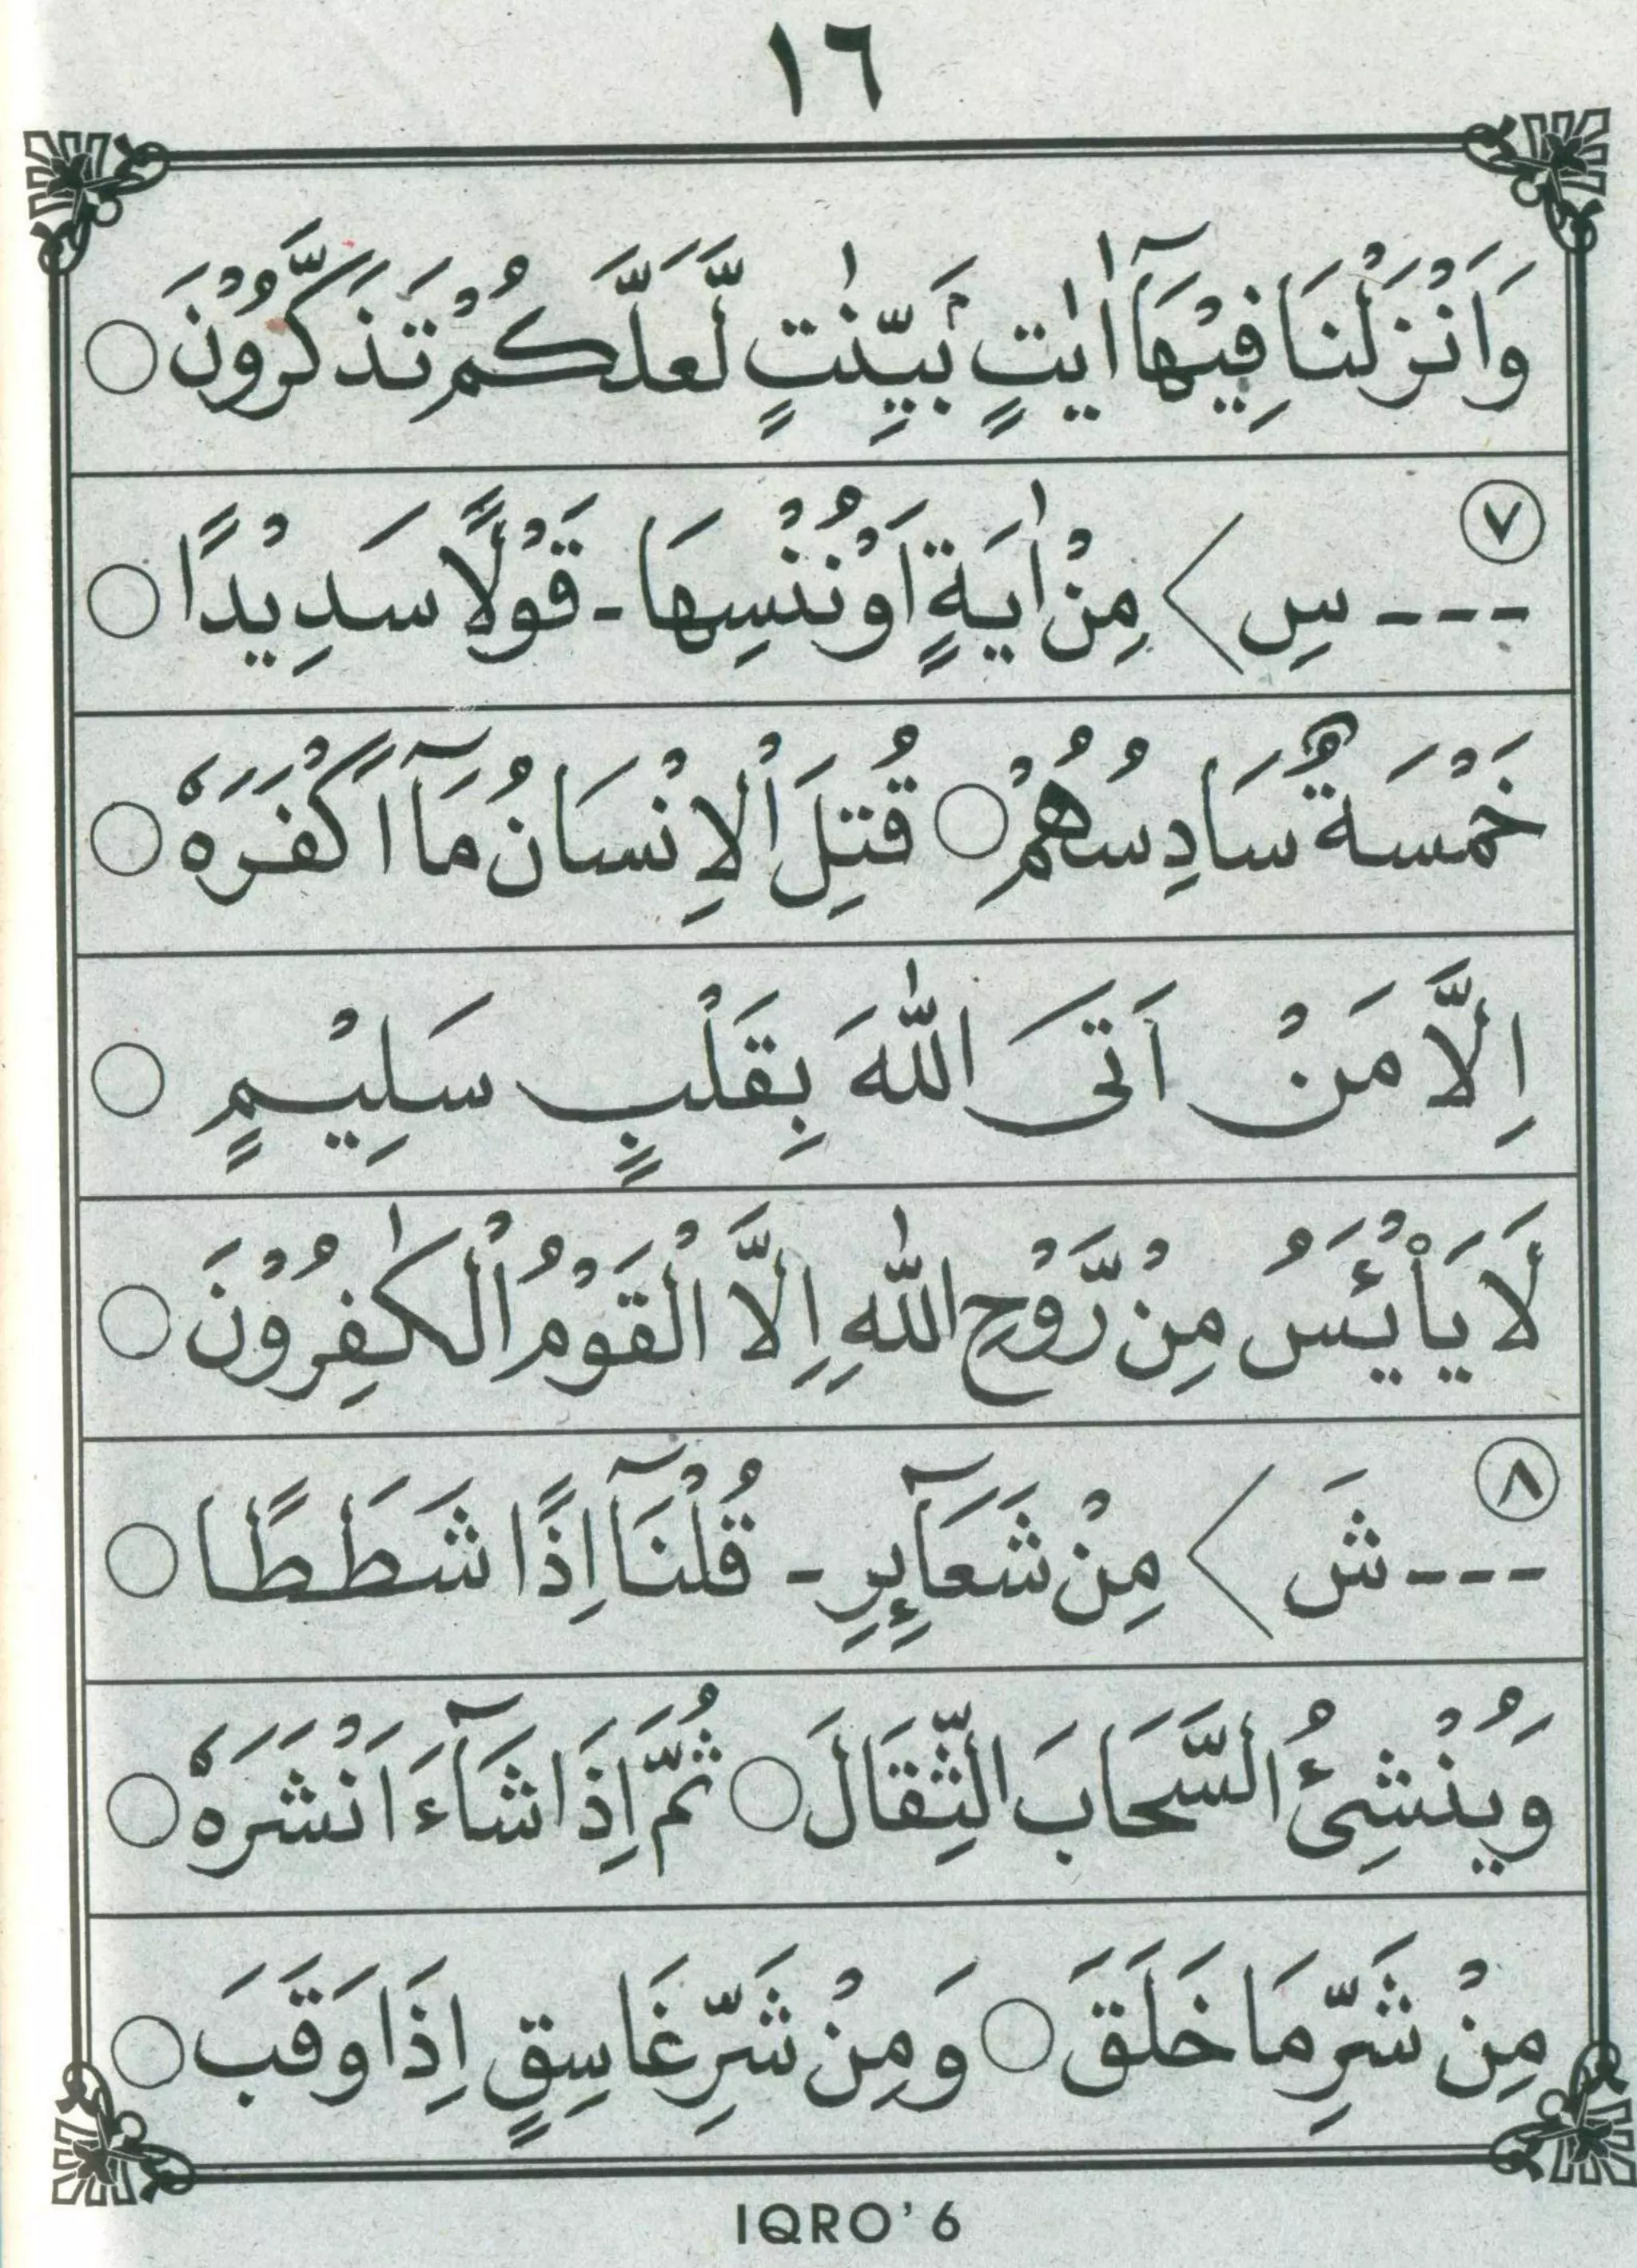 ١٦
وَاَنْزَلْنَا فِيْهَآ اٰيٰتٍۢ بَيِّنٰتٍ لَّعَلَّكُمْ تَذَكَّرُوْنَ ○
٧
--- سِ < مِنْ اٰيَةٍ اَوْ نُنْسِهَا - قَوْلًا سَدِيْدًا ○
خَمْسَةٌ سَادِسُهُمْ ○ قُتِلَ اْلاِنْسَانُ مَآ اَكْفَرَهٗ ○
اِلَّا مَنْ اَتَى اللّٰهَ بِقَلْبٍ سَلِيْمٍ ○
لَا يَاْيْئَسُ مِنْ رَّوْحِ اللّٰهِ اِلَّا الْقَوْمُ الْكٰفِرُوْنَ ○
٨
--- شَ < مِنْ شَعَآئِرِ - قُلْنَآ اِذًا شَطَطًا ○
وَيُنْشِئُ السَّحَابَ الثِّقَالَ ○ ثُمَّ اِذَا شَآءَ اَنْشَرَهٗ ○
مِنْ شَرِّ مَا خَلَقَ ○ وَمِنْ شَرِّ غَاسِقٍ اِذَا وَقَبَ ○
IQRO' 6